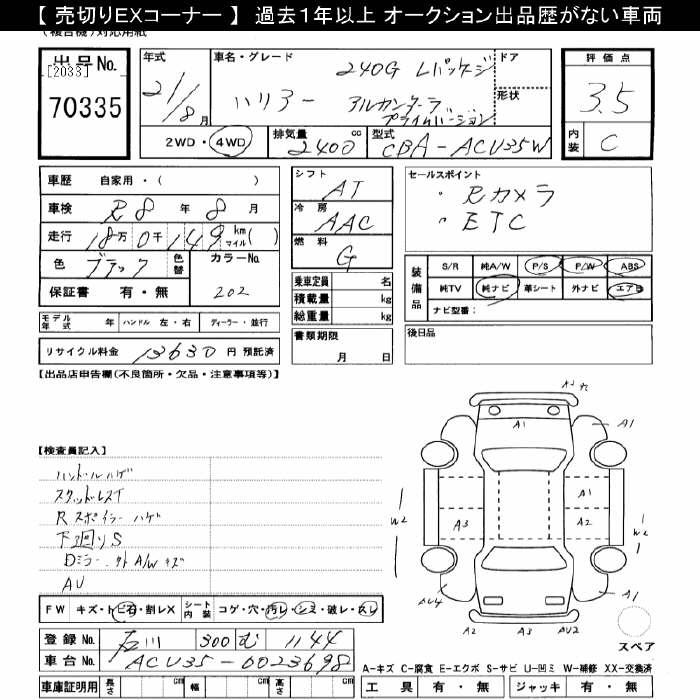 【 売切りEXコーナー 】 過去1年以上 オークション出品歴がない車両
出品No.
[2033]
70335
年式
21/8月
車名・グレード
ハリアー
240G Lパッケージ
アルカンターラ
プライムバージョン
ドア
形状
評価点
3.5
内装
C
2WD・4WD
排気量
2400 cc
型式
CBA-ACU35W
車歴 自家用・( )
車検 R8年 8月
走行 18万0千149 km マイル( )
色 ブラック 色替
カラーNo. 202
保証書 有・無
モデル年式 年 ハンドル 左・右 ディーラー・並行
リサイクル料金 13630 円 預託済
シフト AT
冷房 AAC
燃料 G
乗車定員 名
積載量 kg
総重量 kg
書類期限
月 日
セールスポイント
・Rカメラ
・ETC
装備品
S/R 純A/W P/S P/W ABS
純TV 純ナビ 革シート 外ナビ エアB
ナビ型番:
後日品
【出品店申告欄(不良箇所・欠品・注意事項等)】
【検査員記入】
ハンドルハゲ
スタッドレスT
Rスポイラーハゲ
下廻りS
Dミラー、外A/Wキズ
AU
FW キズ・トビ石・割レX シート内装 コゲ・穴・汚レ・シミ・破レ・スレ
登録No. 石川 300 む 1144
車台No. ACU35-0023698
車庫証明用 長さ cm 幅 cm 高さ cm
A1
A1
A1
A2
A3
W2
W2
AU4
A1
A2
A3
AU2
スペア
A-キズ C-腐食 E-エクボ S-サビ U-凹ミ W-補修 XX-交換済
工具 有・無 ジャッキ 有・無